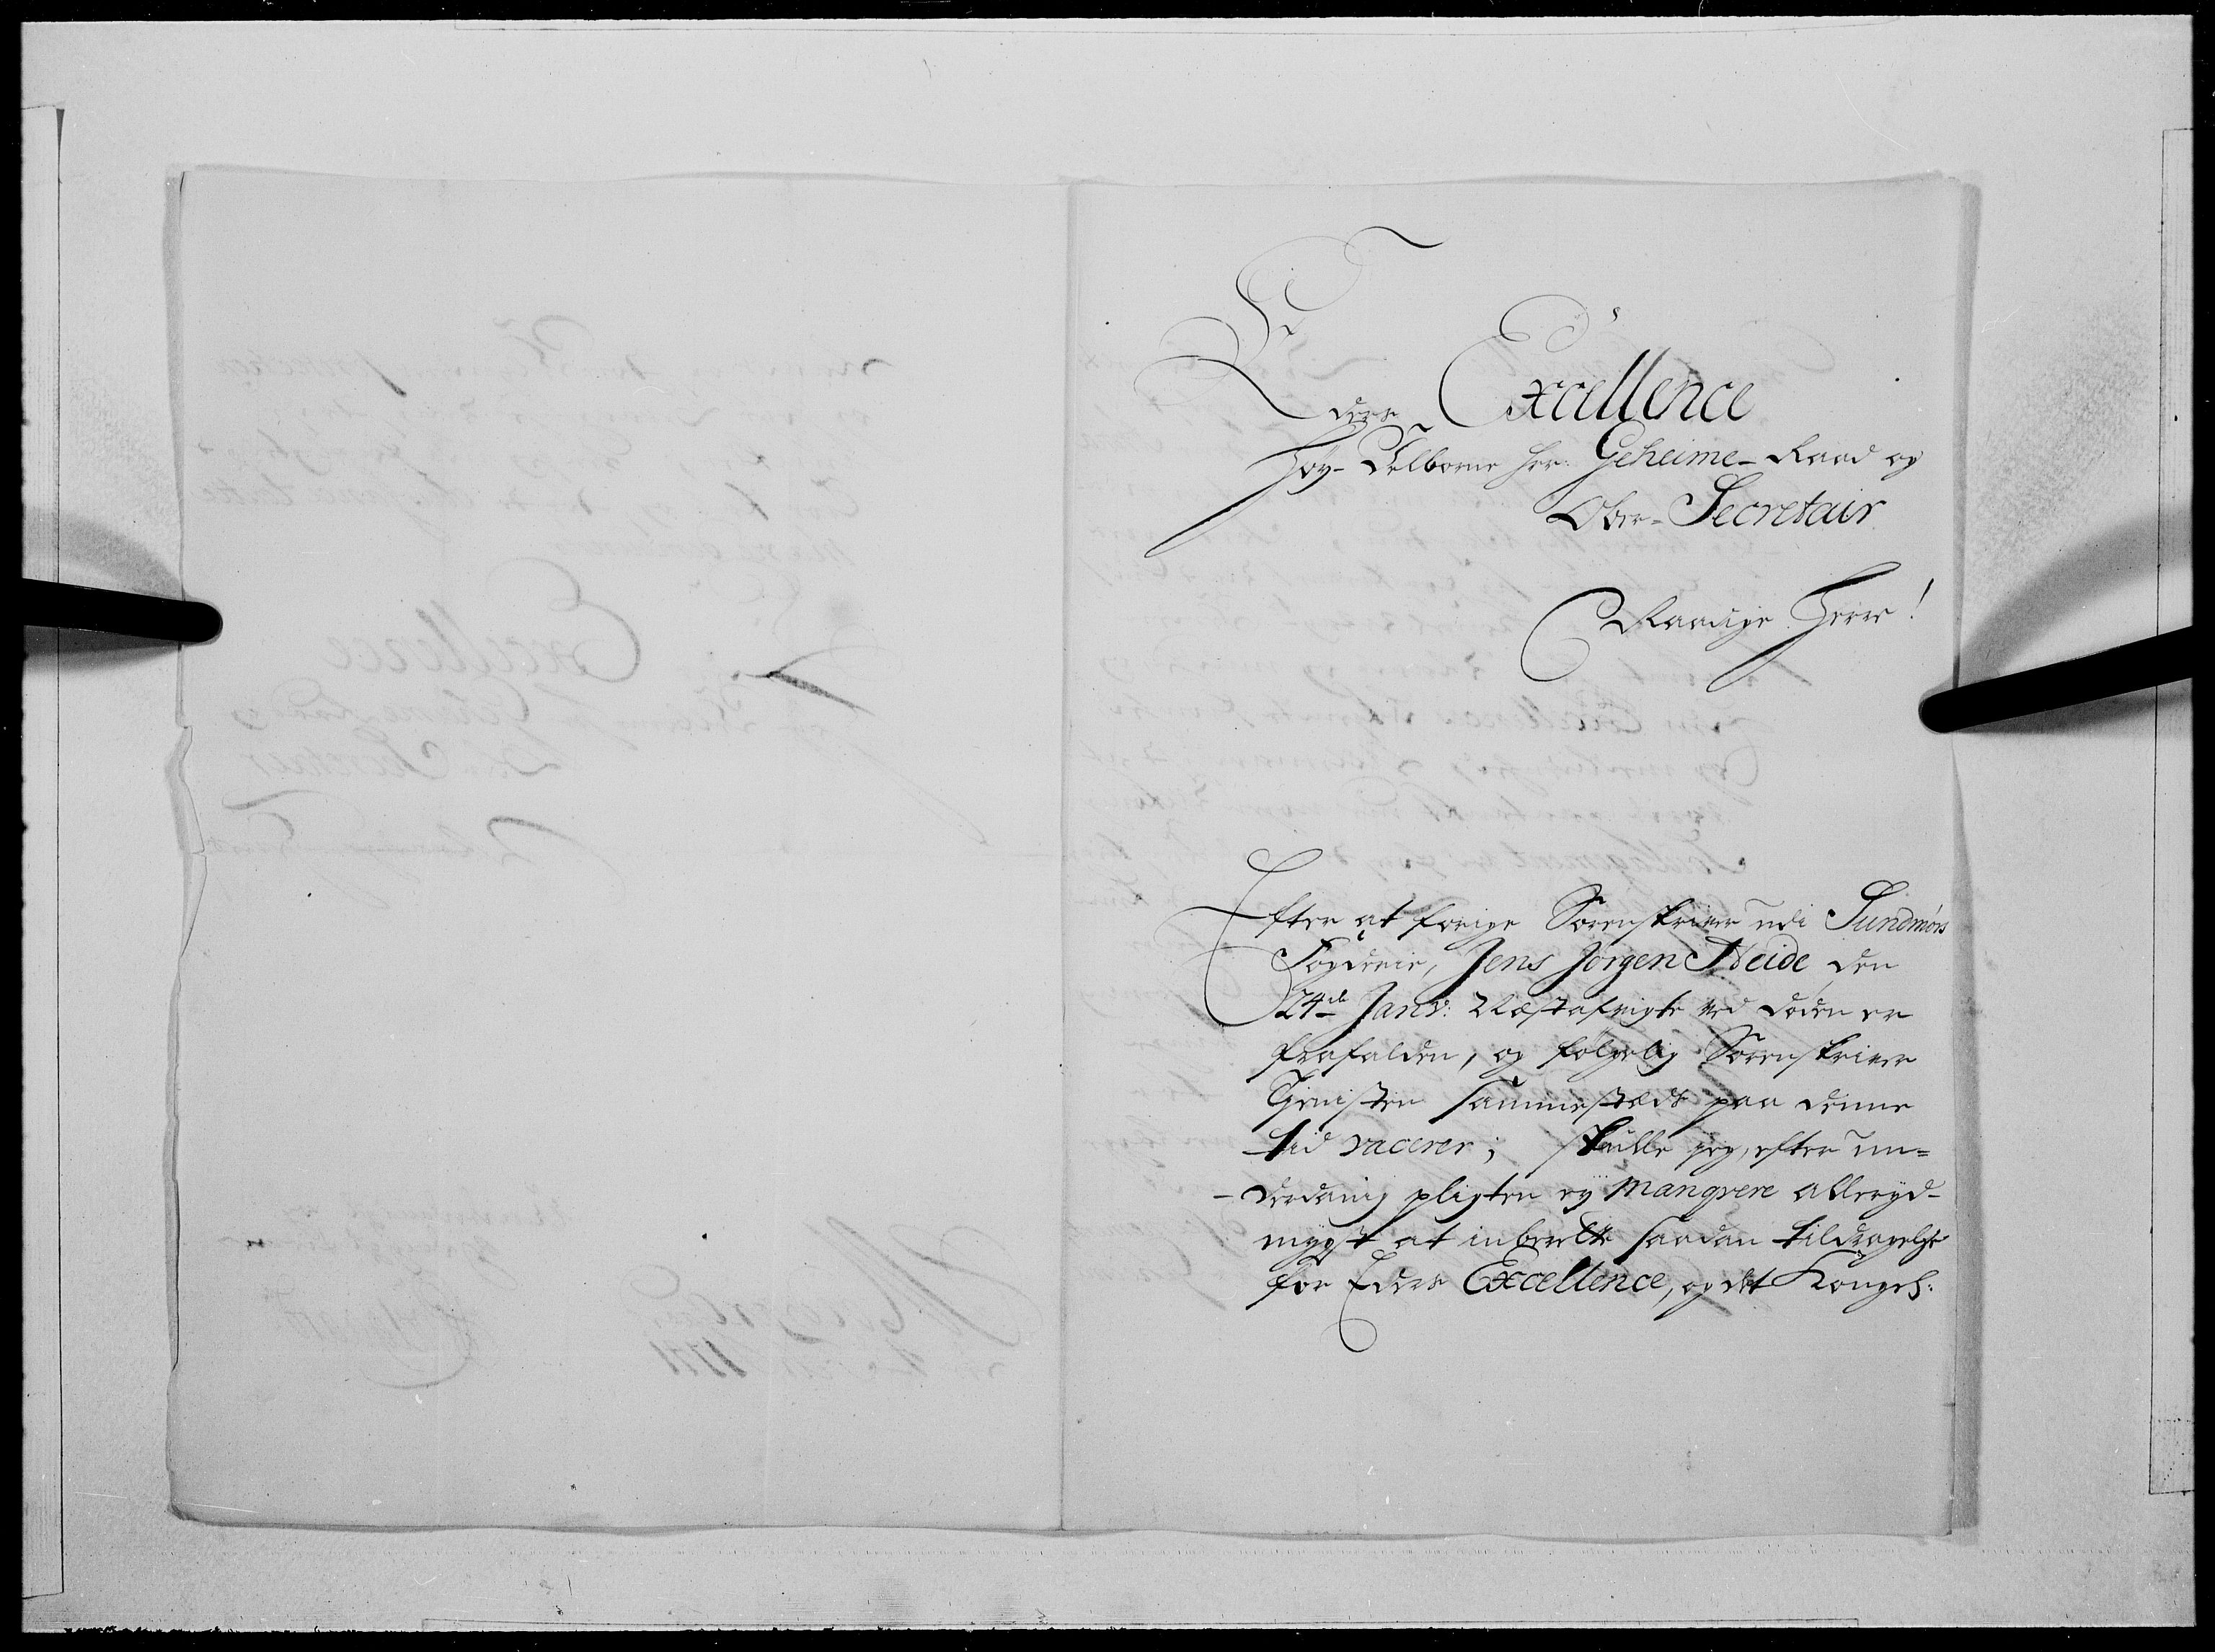 Eders Excellence
Høy-Velborne Hr: Geheime-Raad og
Ober-Secretair
Naadige Herre!
Efter at forige Sorenskriver udi Sundmørs
Fogderie, Jens Jørgen Heide, den
24de Janv: Næstafvigte ved døden er
frafalden, og følgelig Sorenskriver
Tienisten sammestæds paa denne
tid vacerer; skulle jeg, efter un=
derdanig pligten ey manqvere alleryd-
mygst at inberette saadan tildragelse
for Eders Excellence, og det Kongel: